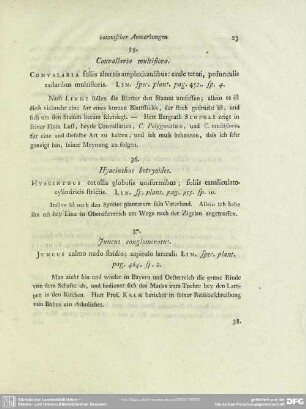 botanischer Anmerkungen. 23
35.
Convallaria multiflora.
CONVALARIA foliis alternis amplexicaulibus: caule tereti, pedunculis
axillaribus multifloris. LIN. spec. plant. pag. 452. sp. 4.
Nach LINNE sollen die Blätter den Stamm umfassen; allein es ist
dieß vielmehr eine Art eines kurzen Blattstiels, der stark gedruckt ist, und
sich um den Stamm herum schmiegt. — Herr Bergrath SCOPOLI zeigt in
seiner Flora Lust, beyde Convallarien, C. Polygonatum, und C. multiflora
für eine und dieselbe Art zu halten, und ich muß bekennen, daß ich sehr
geneigt bin, seiner Meynung zu folgen.
36.
Hyacinthus botryoides.
HYACINTHUS corollis globosis uniformibus; foliis canaliculato-
cylindricis strictis. LIN. sp. plant. pag. 455. sp. 10.
Italien ist nach den Species plantarum sein Vaterland. Allein ich habe
ihn bey Linz in Oberösterreich am Wege nach der Zizlau angetroffen.
37.
Juncus conglomeratus.
JUNCUS culmo nudo stricto; capitulo laterali LIN. spec. plant.
pag. 464. sp. 2.
Man zieht hin und wieder in Bayern und Oesterreich die grüne Rinde
von dem Schafte ab, und bedienet sich des Markes zum Tochte bey den Lam-
pen in den Kirchen. Herr Prof. KALM berichtet in seiner Reisebeschreibung
von Bahus ein Aehnliches.
38.